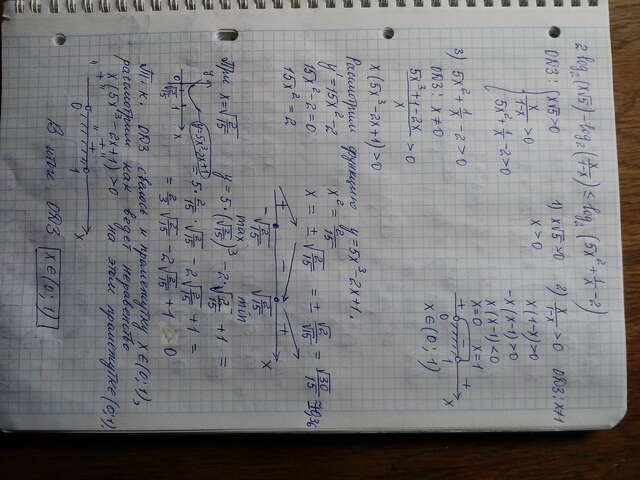 2 log₂(x√5) - log₂(x/(1-x)) ≤ log₂(5x² + 1/x - 2)
ОДЗ: { x√5 > 0
x/(1-x) > 0
5x² + 1/x - 2 > 0
1) x√5 > 0
x > 0
2) x/(1-x) > 0 ОДЗ: x≠1
x(1-x) > 0
-x(x-1) > 0
x(x-1) < 0
x=0 x=1
+ - +
0 1 x
x ∈ (0; 1)
3) 5x² + 1/x - 2 > 0
ОДЗ: x ≠ 0
(5x³+1-2x)/x > 0
x(5x³-2x+1) > 0
Рассмотрим функцию y = 5x³-2x+1.
y' = 15x²-2
15x²-2=0
15x²=2
x² = 2/15
x = ±√(2/15) = ±√2/√15 = √30/15
+ - +
-√(2/15) √(2/15) x
max min
При x = √(2/15) y = 5·(√(2/15))³ - 2·√(2/15) + 1 =
= 5·2/15·√(2/15) - 2√(2/15) + 1 =
= 2/3 √(2/15) - 2√(2/15) + 1 > 0
y
y=5x³-2x+1
0 √(2/15) 1 x
Т.к. ОДЗ свелось к промежутку x ∈ (0; 1),
рассмотрим как ведет неравенство
x(5x³-2x+1) > 0 на этом промежутке (0; 1).
"+" "+"
0 1 x
В итоге ОДЗ x ∈ (0; 1)